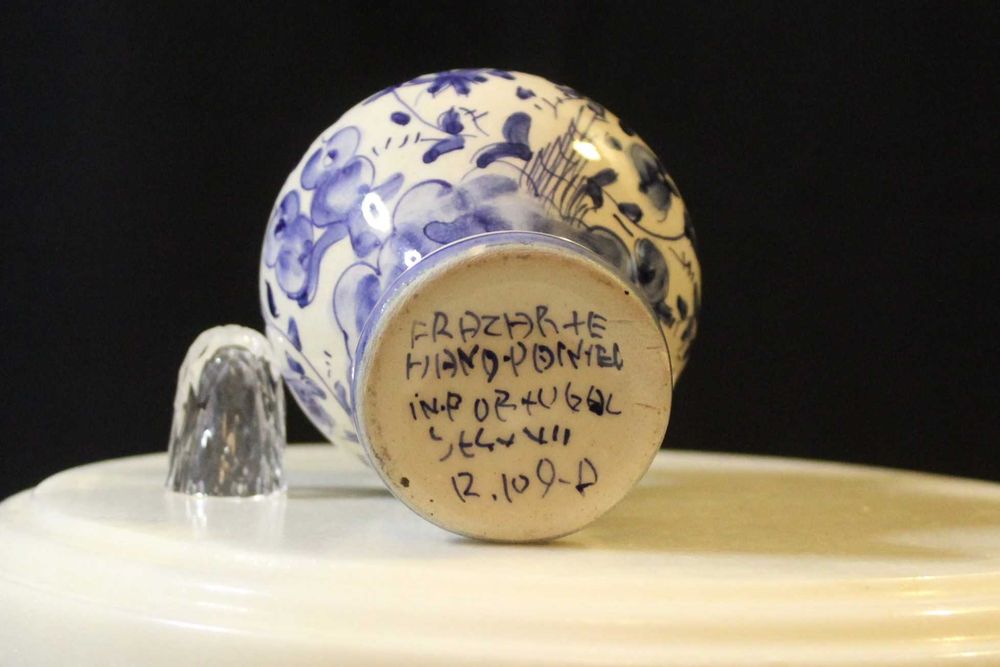 FRAZARTE
HAND-PAINTED
IN.PORTUGAL
SEC. XVII
12.109-A